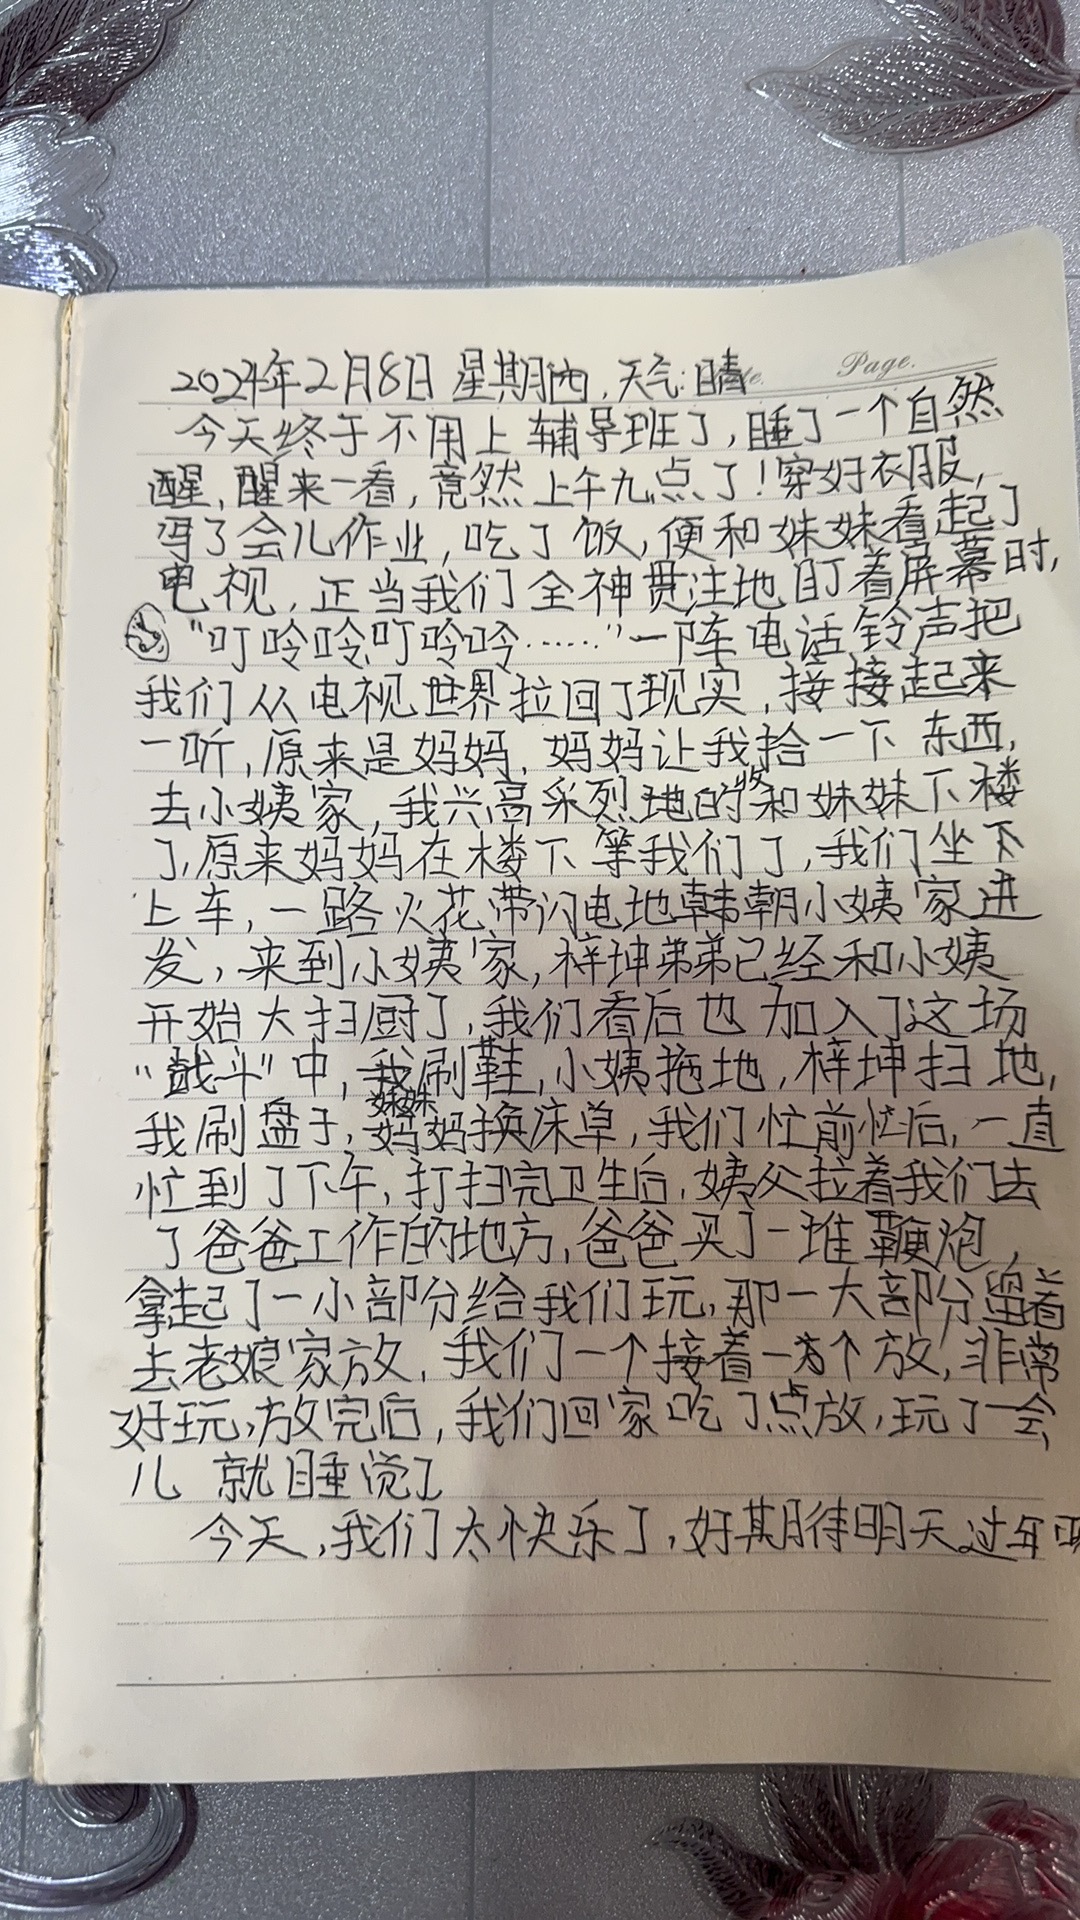 Page.
2024年2月8日 星期四，天气：晴
今天终于不用上辅导班了，睡了一个自然
醒，醒来一看，竟然上午九点了！穿好衣服，
写了会儿作业，吃了饭，便和妹妹看起了
电视，正当我们全神贯注地盯着屏幕时，
“叮呤呤叮呤呤……”一阵电话铃声把
我们从电视世界拉回了现实，接接起来
一听，原来是妈妈，妈妈让我拾一下东西，
去小姨家，我兴高采烈地的和妹妹下楼
了，原来妈妈在楼下等我们了，我们坐下
上车，一路火花带闪电地朝小姨家进
发，来到小姨家，梓坤弟弟已经和小姨
开始大扫厨了，我们看后也加入了这场
“战斗”中，我刷鞋，小姨拖地，梓坤扫地，
妹妹
我刷盘子，妈妈换床单，我们忙前忙后，一直
忙到了下午，打扫完卫生后，姨父拉着我们去
了爸爸工作的地方，爸爸买了一堆鞭炮，
拿起了一小部分给我们玩，那一大部分留着
去老娘家放，我们一个接着一个放，非常
好玩，放完后，我们回家吃了点放，玩了一会
儿 就睡觉了
今天，我们太快乐了，好期待明天过年